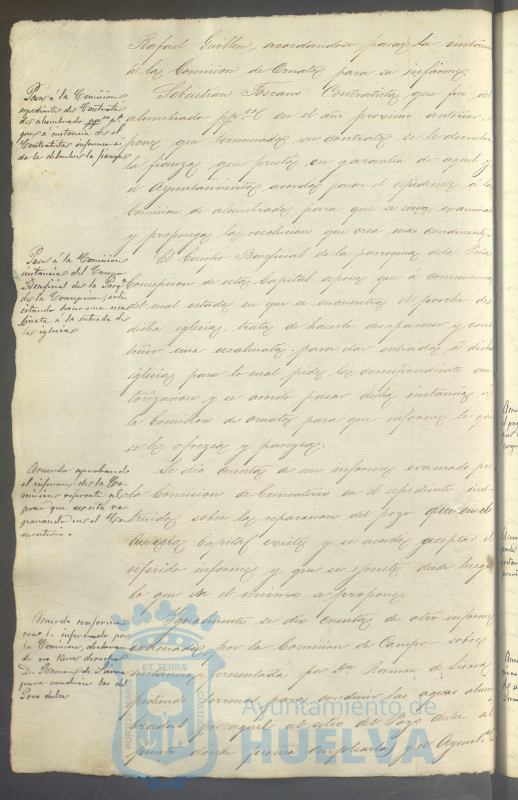 Rafael Guillen, acordandose pasar la instancia
á la Comision de Ornato para su informe.
Pase á la Comision
expediente de Contrata
de alumbrado
á instancia de el
Contratista informe si
se le debuelve la fianza
Sebastian Toscano Contratista que fué del
alumbrado en el año proximo anterior, es
pone que terminada su contrata se le devuelva
la fianza que prestó en garantia de aquel y
el Ayuntamiento acordó pasar el espediente á la
Comision de alumbrado para que se sirva examinar
y proponga la resolucion que crea mas conducente.
Pase á la Comision
instancia del Cuerpo
Beneficial de la Parroquia
de la Concepcion, soli
citando hacer una esca
linata á la entrada de
la iglesia
El Cuerpo Beneficial de la parroquia de la
Concepcion de esta Capital espone que á consecuencia
del mal estado en que se encuentra el porche de
dicha iglesia, trata de hacerlo desaparecer y cons
truir una escalinata para dar entrada á dicha
iglesia para lo cual pide la correspondiente au
torizacion y se acordó pasar dicha instancia á
la Comision de Ornato para que informe lo que
se le ofrezca y parezca.
Acuerdo aprobando
el informe de la Co
mision referente al
pozo que se está re
parando en el Ce
menterio.
Se dió cuenta de un informe evacuado por
la Comision de Cementerio en el espediente ins
truido sobre la reparacion del pozo que en el
de esta Capital existe y se acordó aceptar el
referido informe y que se ejecute desde luego
lo que en el mismo se propone.
Acuerdo conforme
con lo informado por
la Comision, declaran
do no tiene derecho
D. Ramon de Sierra
para conducir las del
Pozo dulce
Igualmente se dió cuenta de otro informe
evacuado por la Comision de Campo sobre
instancia presentada por Dn Ramon de Sierra
pidiendo terreno para conducir las aguas alum
bradas por aquel al sitio del Pozo dulce al
punto donde piensa emplearlas y el Ayuntto
ET TERRÆ
CUSTODIA
Ayuntamiento de
HUELVA